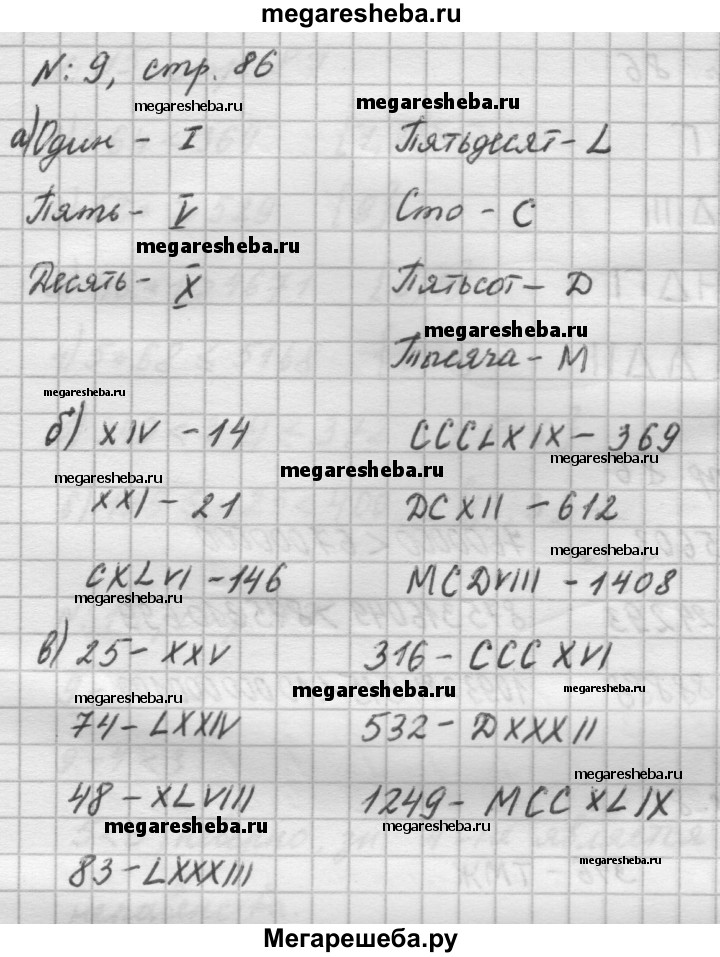 megaresheba.ru
N: 9, стр. 86
megaresheba.ru
megaresheba.ru
а) Один - I Пятьдесят - L
Пять - V Сто - C
megaresheba.ru
Десять - X Пятьсот - D
megaresheba.ru
Тысяча - M
megaresheba.ru
б) XIV - 14 CCCLXIX - 369
megaresheba.ru
megaresheba.ru
XXI - 21 DCXII - 612
megaresheba.ru
CXLVI - 146 MCDVIII - 1408
megaresheba.ru
megaresheba.ru
в) 25 - XXV 316 - CCCXVI
megaresheba.ru
megaresheba.ru
megaresheba.ru
74 - LXXIV 532 - DXXXII
megaresheba.ru
48 - XLVIII 1249 - MCCXLIX
megaresheba.ru
megaresheba.ru
83 - LXXXIII
megaresheba.ru
Мегарешеба.ру